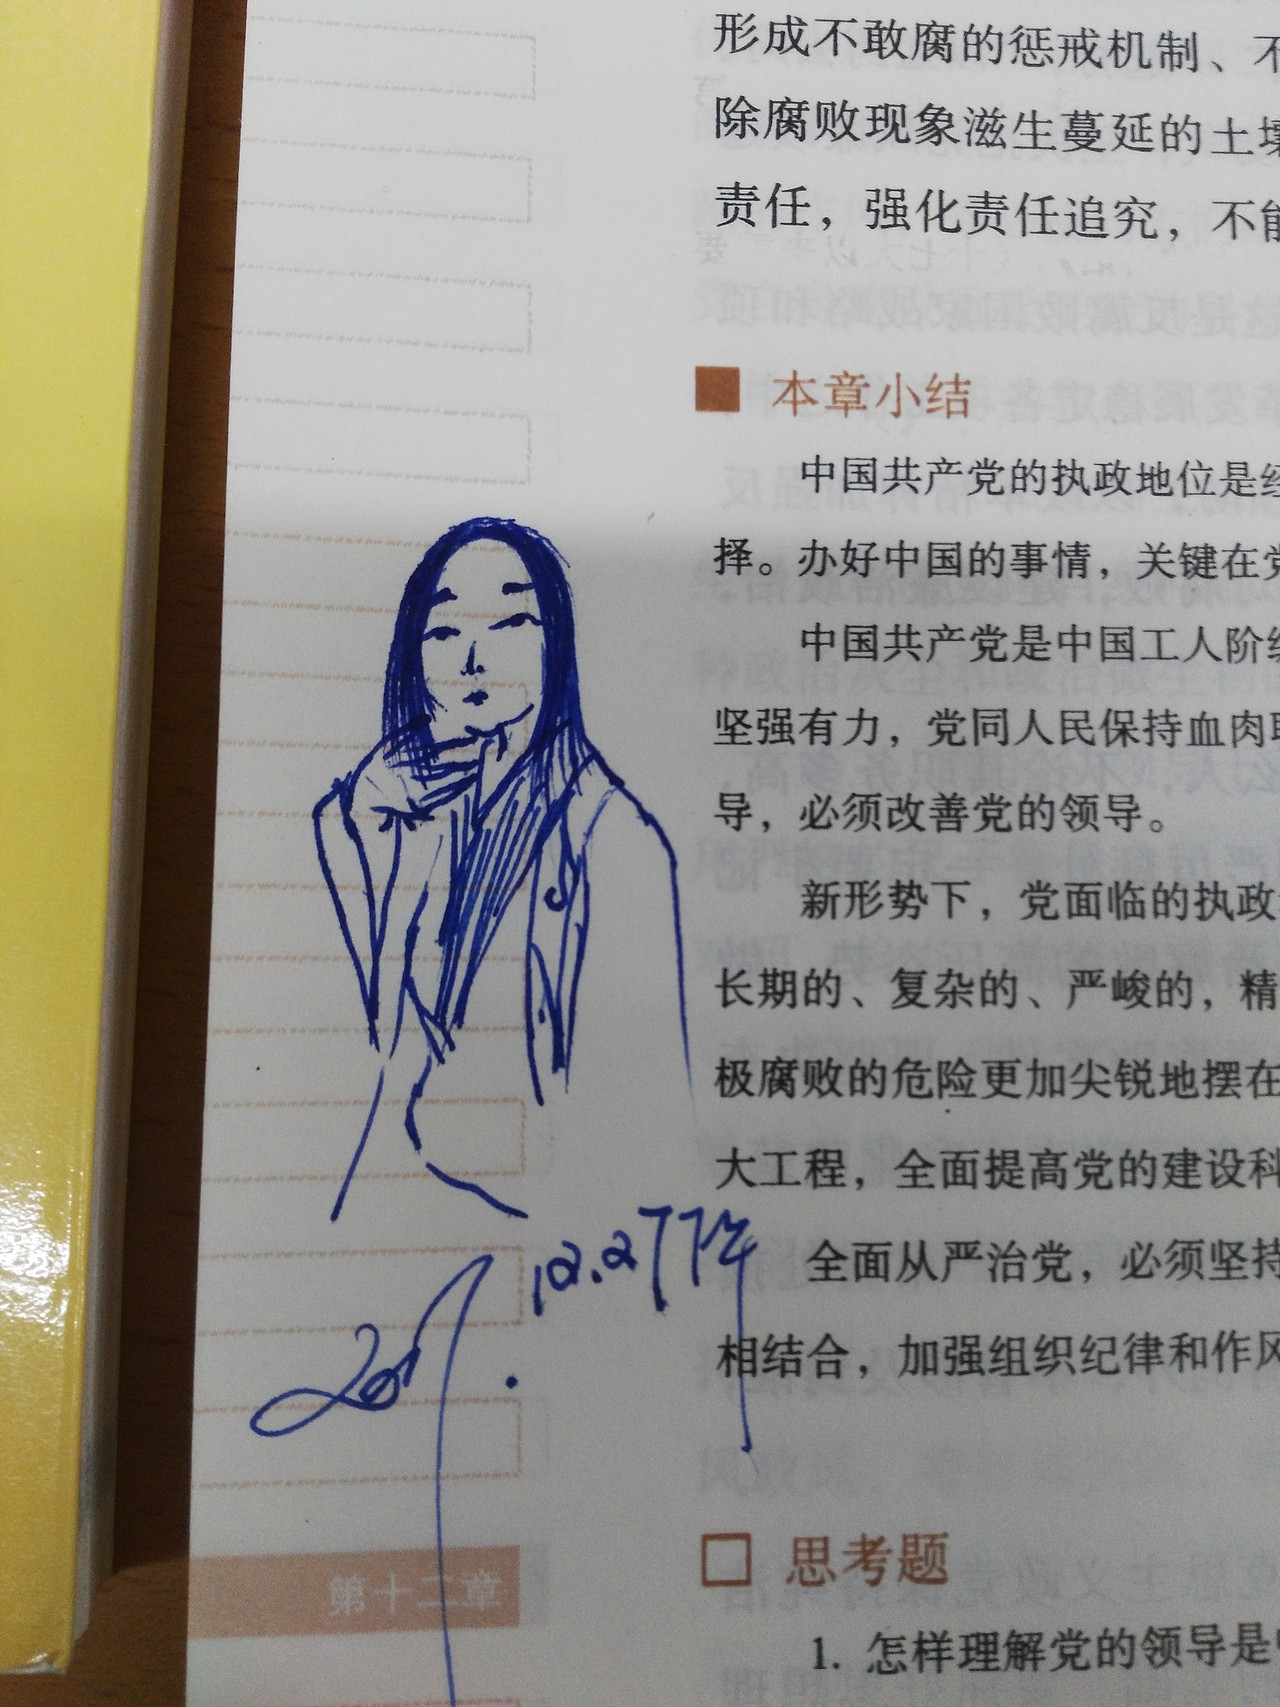 形成不敢腐的惩戒机制、不
除腐败现象滋生蔓延的土壤
责任，强化责任追究，不能
本章小结
中国共产党的执政地位是经
择。办好中国的事情，关键在党
中国共产党是中国工人阶级
坚强有力，党同人民保持血肉联
导，必须改善党的领导。
新形势下，党面临的执政
长期的、复杂的、严峻的，精
极腐败的危险更加尖锐地摆在
大工程，全面提高党的建设科
全面从严治党，必须坚持
相结合，加强组织纪律和作风
2017.12.27下午
第十二章
思考题
1. 怎样理解党的领导是中